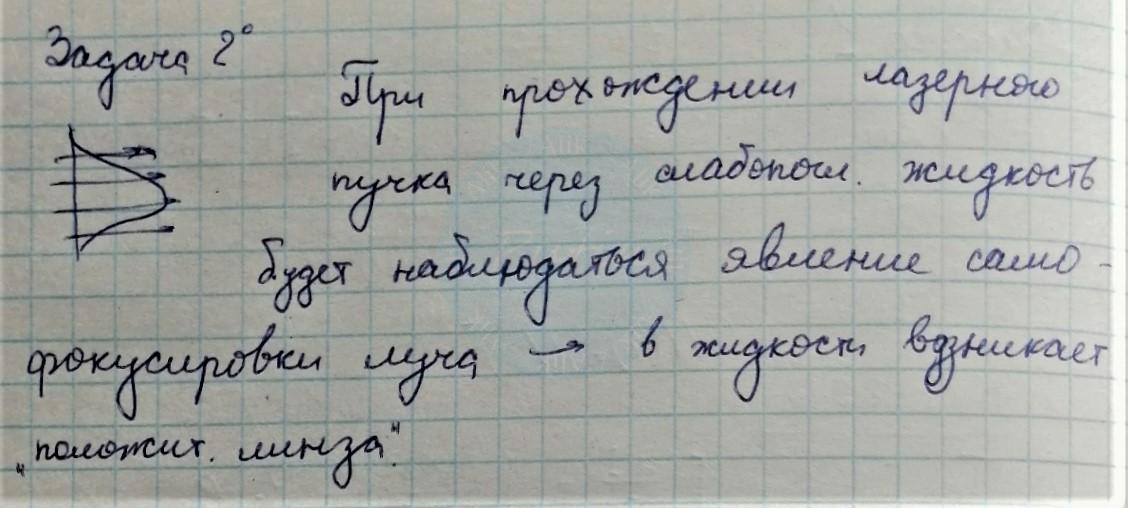 Задача 2°
При прохождении лазерного
пучка через слабопогл. жидкость
будет наблюдаться явление само-
фокусировки луча → в жидкости возникает
„положит. линза".